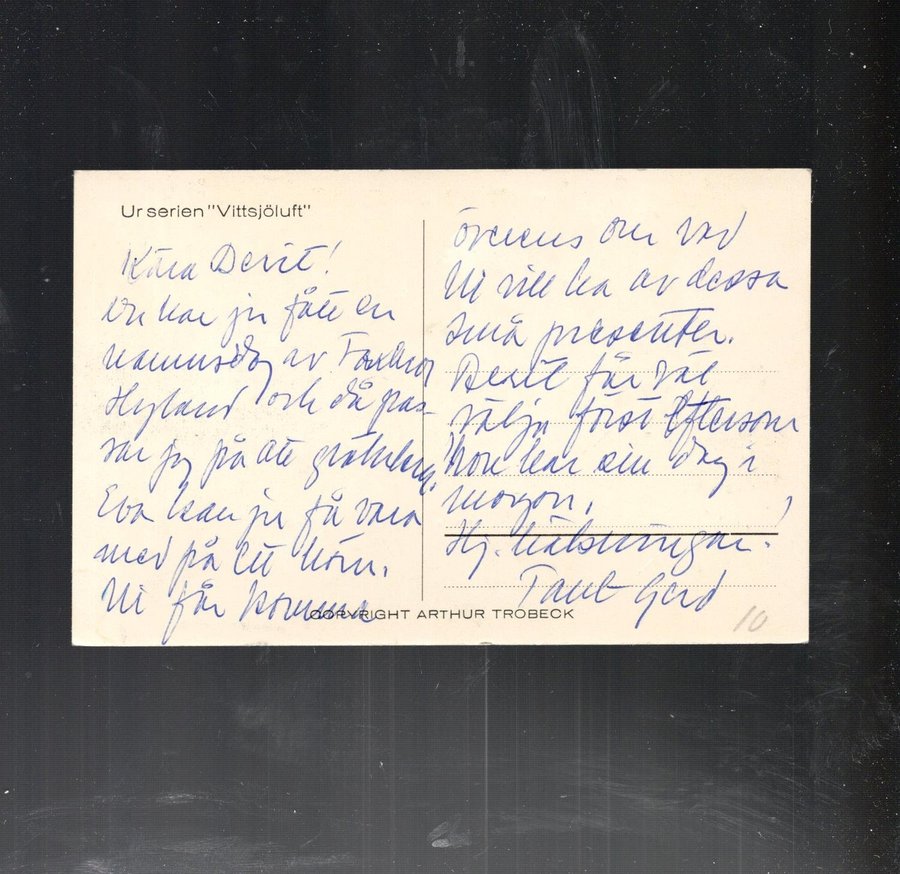 Ur serien "Vittsjöluft"
Kära Berit!
Du har ju fått en
namnsdag av Farbror
Hyland och då pas-
sar jag på att gratulera.
Eva kan ju få vara
med på ett hörn.
Ni får komma
överens om vad
Ni vill ha av dessa
små presenter.
Berit får väl
välja först eftersom
hon har sin dag i
morgon.
Hj. hälsningar!
Tant Gerd
COPYRIGHT ARTHUR TROBECK
10